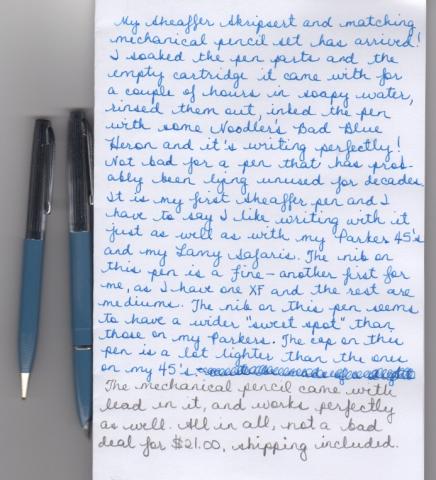 My Sheaffer Skripsert and matching
mechanical pencil set has arrived!
I soaked the pen parts and the
empty cartridge it came with for
a couple of hours in soapy water,
rinsed them out, inked the pen
with some Noodler's Bad Blue
Heron and it's writing perfectly!
Not bad for a pen that has prob-
ably been lying unused for decades.
It is my first Sheaffer pen and I
have to say I like writing with it
just as well as with my Parker 45's
and my Lamy Safaris. The nib on
this pen is a fine - another first for
me, as I have one XF and the rest are
mediums. The nib on this pen seems
to have a wider "sweet spot" than
those on my Parkers. The cap on this
pen is a lot lighter than the ones
on my 45's.
The mechanical pencil came with
lead in it, and works perfectly
as well. All in all, not a bad
deal for $21.00, shipping included.